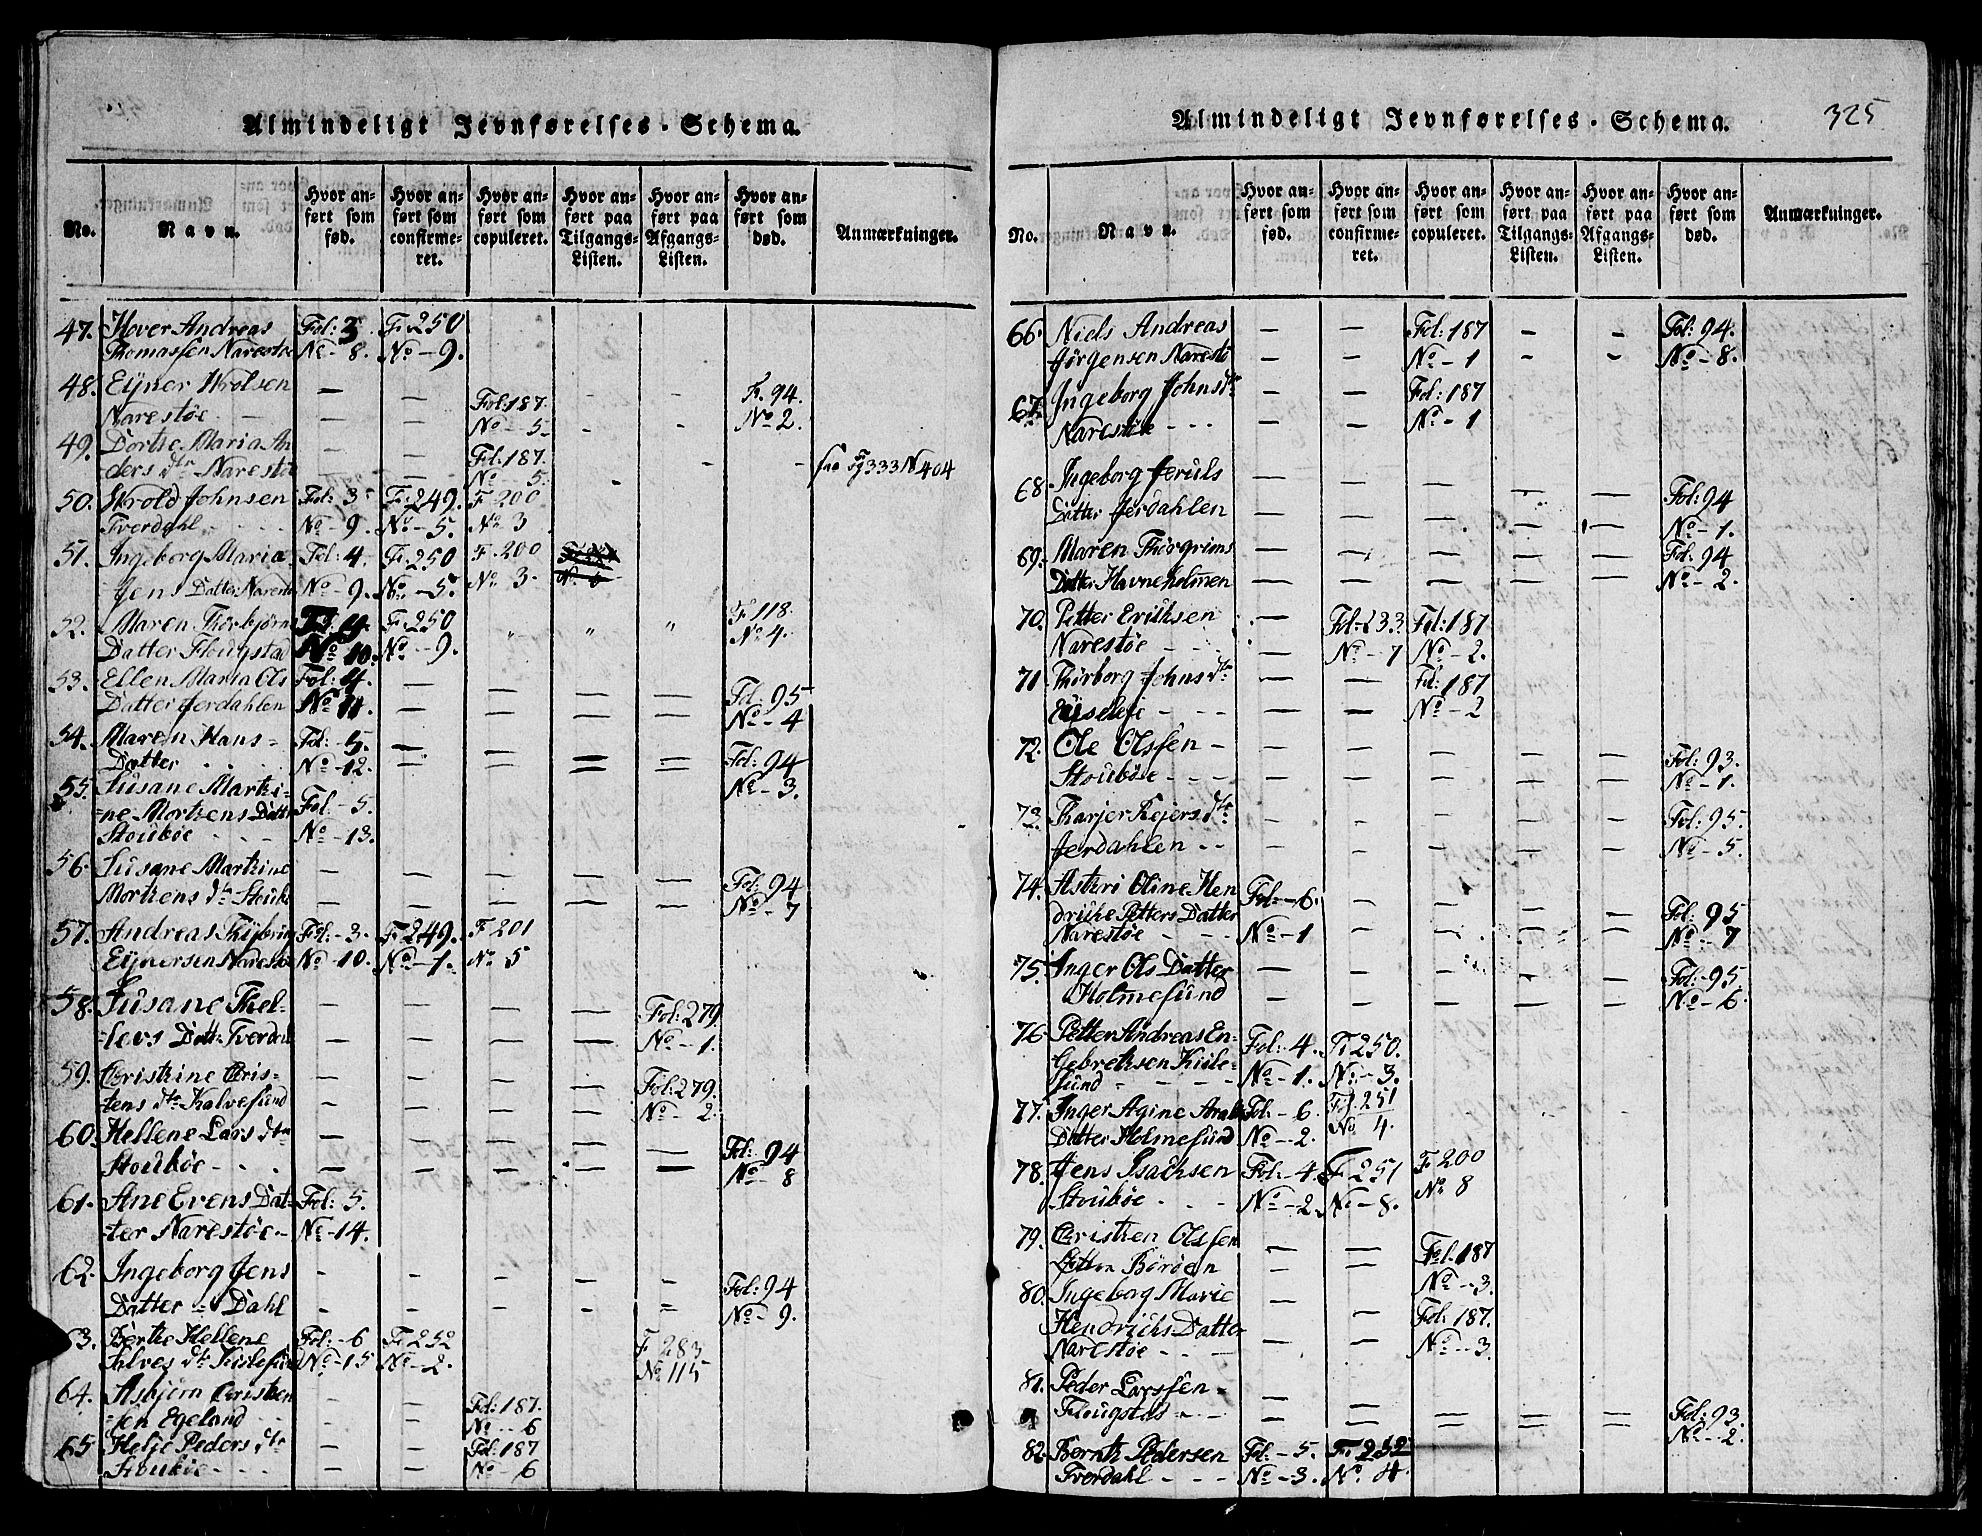 Almindeligt Jevnførelses-Schema.
No.
Navn.
Hvor anført som fød.
Hvor anført som confirmeret.
Hvor anført som copuleret.
Hvor anført paa Tilgangs-Listen.
Hvor anført paa Afgangs-Listen.
Hvor anført som død.
Anmærkninger.
47. Hover Andreas Fol: 3 F: 250
Thomassen Narestøe No - 8. No - 9.
48. Eijner Wrolsen — — Fol: 187. - - F. 94.
Narestøe — — No - 5 - - No 2.
49. Dorthe Maria An — — Fol: 187.
ders dtr Narestøe — — No 5. - - fra Fg 333 N 404
50. Wrold Johnsen Fol: 3 F: 249. F 200
Tverdahl No - 9. No - 5. No 3
51. Ingeborg Maria Fol: 4. F: 250 F. 200
Jens Datter Narestøe No - 9. No - 5. No 3.
52. Maren Thorbjørn Fol: 4. F: 250 F 118.
Datter Flougstad No 10. No - 9. " " " No 4.
53. Ellen Maria Ols Fol: 4. — — — — Fol: 95
Datter Jerdahlen No 11. — — — — No - 4
54. Maren Hans = Fol: 5. — — — — Fol: 94
Datter No - 12. — — — — No - 3.
55. Susane Marthi=
=ne Mortens Datter Fol - 5.
Stoubøe No - 13.
56. Susane Marthine — — — — — Fol: 94
Mortens dtr Stoubøe — — — — — No - 7
57. Andreas Thijbring Fol: - 3. F: 249. F 201
Eijnersen Narestøe No - 10. No - 1. No 5
58. Susane Thel- — — — — Fol: 279
=levs Datt: Tverdal — — — — No - 1.
59. Christine Chris= — — — — Fol: 279.
tens dtr Kalvesund — — — — No 2.
60. Hellene Lars dtr — — — — — Fol: 94
Stoubøe — — — — — No - 8
61. Ane Evens Dat= Fol: 5.
=ter Narestøe - No - 14.
62. Ingeborg Jens — — — — — Fol: 94
Datter = Dahl — — — — — No - 9.
63. Berthe Hellene Fol: - 6 F: 252 F 283
Halves dtr Kislesund No - 15 No - 2. No 115
64. Asbjørn Christen — — Fol: 187.
=sen Egeland — — No - 6
65 Helje Peders dtr — — Fol: 187
Stoubøe — — No - 6
Almindeligt Jevnførelses-Schema. 325
No.
Navn.
Hvor anført som fød.
Hvor anført som confirmeret.
Hvor anført som copuleret.
Hvor anført paa Tilgangs-Listen.
Hvor anført paa Afgangs-Listen.
Hvor anført som død.
Anmærkninger.
66. Niels Andreas — — Fol: 187 - - Fol: 94.
Jörgensen Narestö — — No - 1 - - No - 8.
67. Ingeborg Johns dtr — — Fol: 187
Narestöe - - - — — No - 1
68. Ingeborg Jeruls — — — — — Fol: 94
Datter Jerdahlen — — — — — No - 1.
69. Maren Thörgrims — — — — — Fol: 94
Datter Havneholmen — — — — — No - 2.
70. Petter Erichsen — Fol: 233 Fol: 187
Narestöe - - - — No - 7 No - 2.
71 Thörborg Johns dtr — — Fol: 187
— — No - 2
72. Ole Olssen - — — — — — Fol: 93.
Stoubøe - - - — — — — — No - 1.
73. Tharjer Rejers dtr — — — — — Fol: 95.
Jerdahlen - - — — — — — No - 5.
74. Astkri Oline Hen Fol: - 6. — — — — Fol: 95
driche Petters Datter
Narestöe - - - No - 1 — — — — No - 7
75. Inger Ols Datter — — — — — Fol: 95.
Holmesund — — — — — No - 6.
76. Petter Andreas En= Fol: 4. F: 250.
Gebrethsen Kisle= No - 1. No - 3.
sund - - - -
77. Inger Agine Fol - 6. Fol. 251
Datter Holmesund No - 2. No 4.
78. Jens Isachsen Fol: - 4. F 251 F 200
Stoubøe - - - No - 2. No - 8. No 8
79. Christen Olssen — — Fol. 187
Börøen — — No - 3.
80. Ingeborg Marie — — Fol: 187.
Hendrichs Datter — — No - 3.
Narestöe - - -
81. Peder Larssen - — — — — — Fol: 93.
Flougstad - - — — — — — No - 2.
82. Bernth Pedersen Fol: - 5. F: 252
Tverdahl - - - No - 3. No. 4.